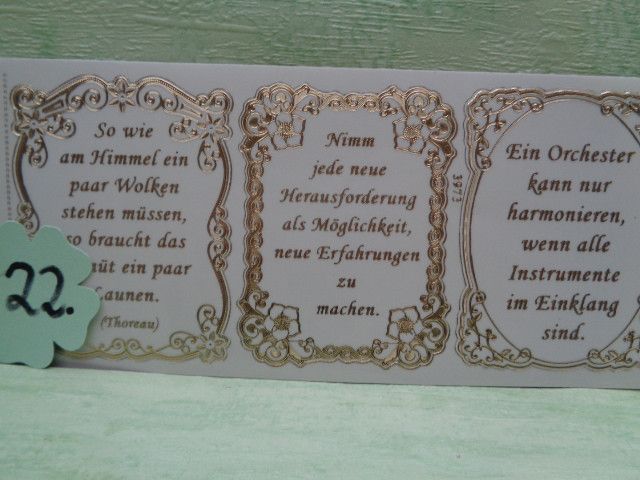 So wie
am Himmel ein
paar Wolken
stehen müssen,
so braucht das
müt ein paar
Launen.
(Thoreau)
22.
Nimm
jede neue
Herausforderung
als Möglichkeit,
neue Erfahrungen
zu
machen.
3973
Ein Orchester
kann nur
harmonieren,
wenn alle
Instrumente
im Einklang
sind.